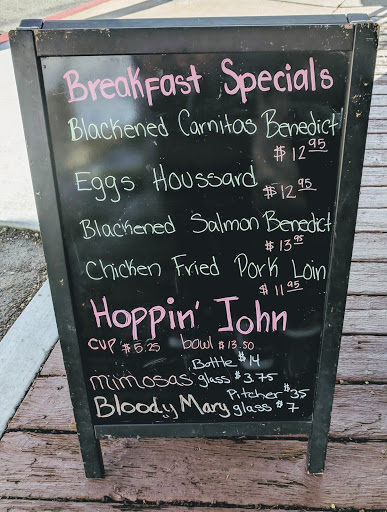 Breakfast Specials
Blackened Carnitas Benedict
$12.95
Eggs Houssard $12.95
Blackened Salmon Benedict
$13.95
Chicken Fried Pork Loin
$11.95
Hoppin' John
cup $5.25 bowl $13.50
Bottle $14
mimosas glass $3.75
Pitcher $35
Bloody Mary glass $7